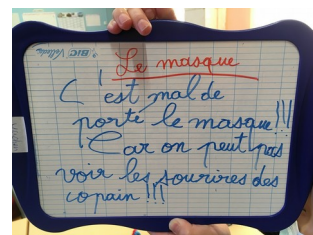 BIC Velleda
Le masque
C'est mal de
porté le masque !!!
Car on peut pas
voir les sourires des
copain !!!